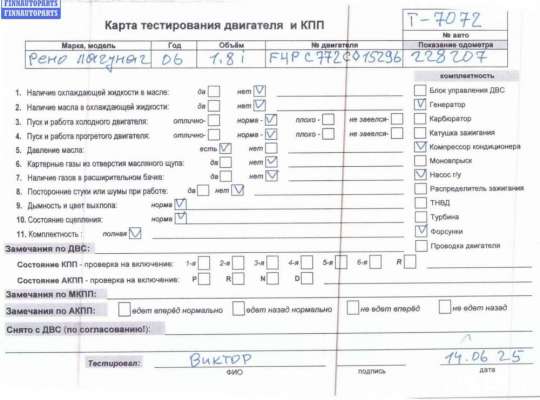 FINNAUTOPARTS
FINNAUTOPARTS
Карта тестирования двигателя и КПП
Т-7072
№ авто
Марка, модель Год Объём № двигателя Показание одометра
Рено Лагуна 2 06 1.8i F4PC772C015296 228207
комплектность
1. Наличие охлаждающей жидкости в масле: да нет
2. Наличие масла в охлаждающей жидкости: да нет
3. Пуск и работа холодного двигателя: отлично- норма - плохо - не завелся-
4. Пуск и работа прогретого двигателя: отлично- норма - плохо - не завелся-
5. Давление масла: есть нет
6. Картерные газы из отверстия масляного щупа: да нет
7. Наличие газов в расширительном бачке: да нет
8. Посторонние стуки или шумы при работе: да нет
9. Дымность и цвет выхлопа: норма
10. Состояние сцепления: норма
11. Комплектность : полная
Блок управления ДВС
Генератор
Карбюратор
Катушка зажигания
Компрессор кондиционера
Моновпрыск
Насос г/у
Распределитель зажигания
ТНВД
Турбина
Форсунки
Проводка двигателя
Замечания по ДВС:
Состояние КПП - проверка на включение: 1-я 2-я 3-я 4-я 5-я 6-я R
Состояние АКПП - проверка на включение: P R N D
Замечания по МКПП:
Замечания по АКПП: едет вперед нормально едет назад нормально не едет вперёд не едет назад
Снято с ДВС (по согласованию!):
Тестировал: Виктор 14.06 25
ФИО подпись дата